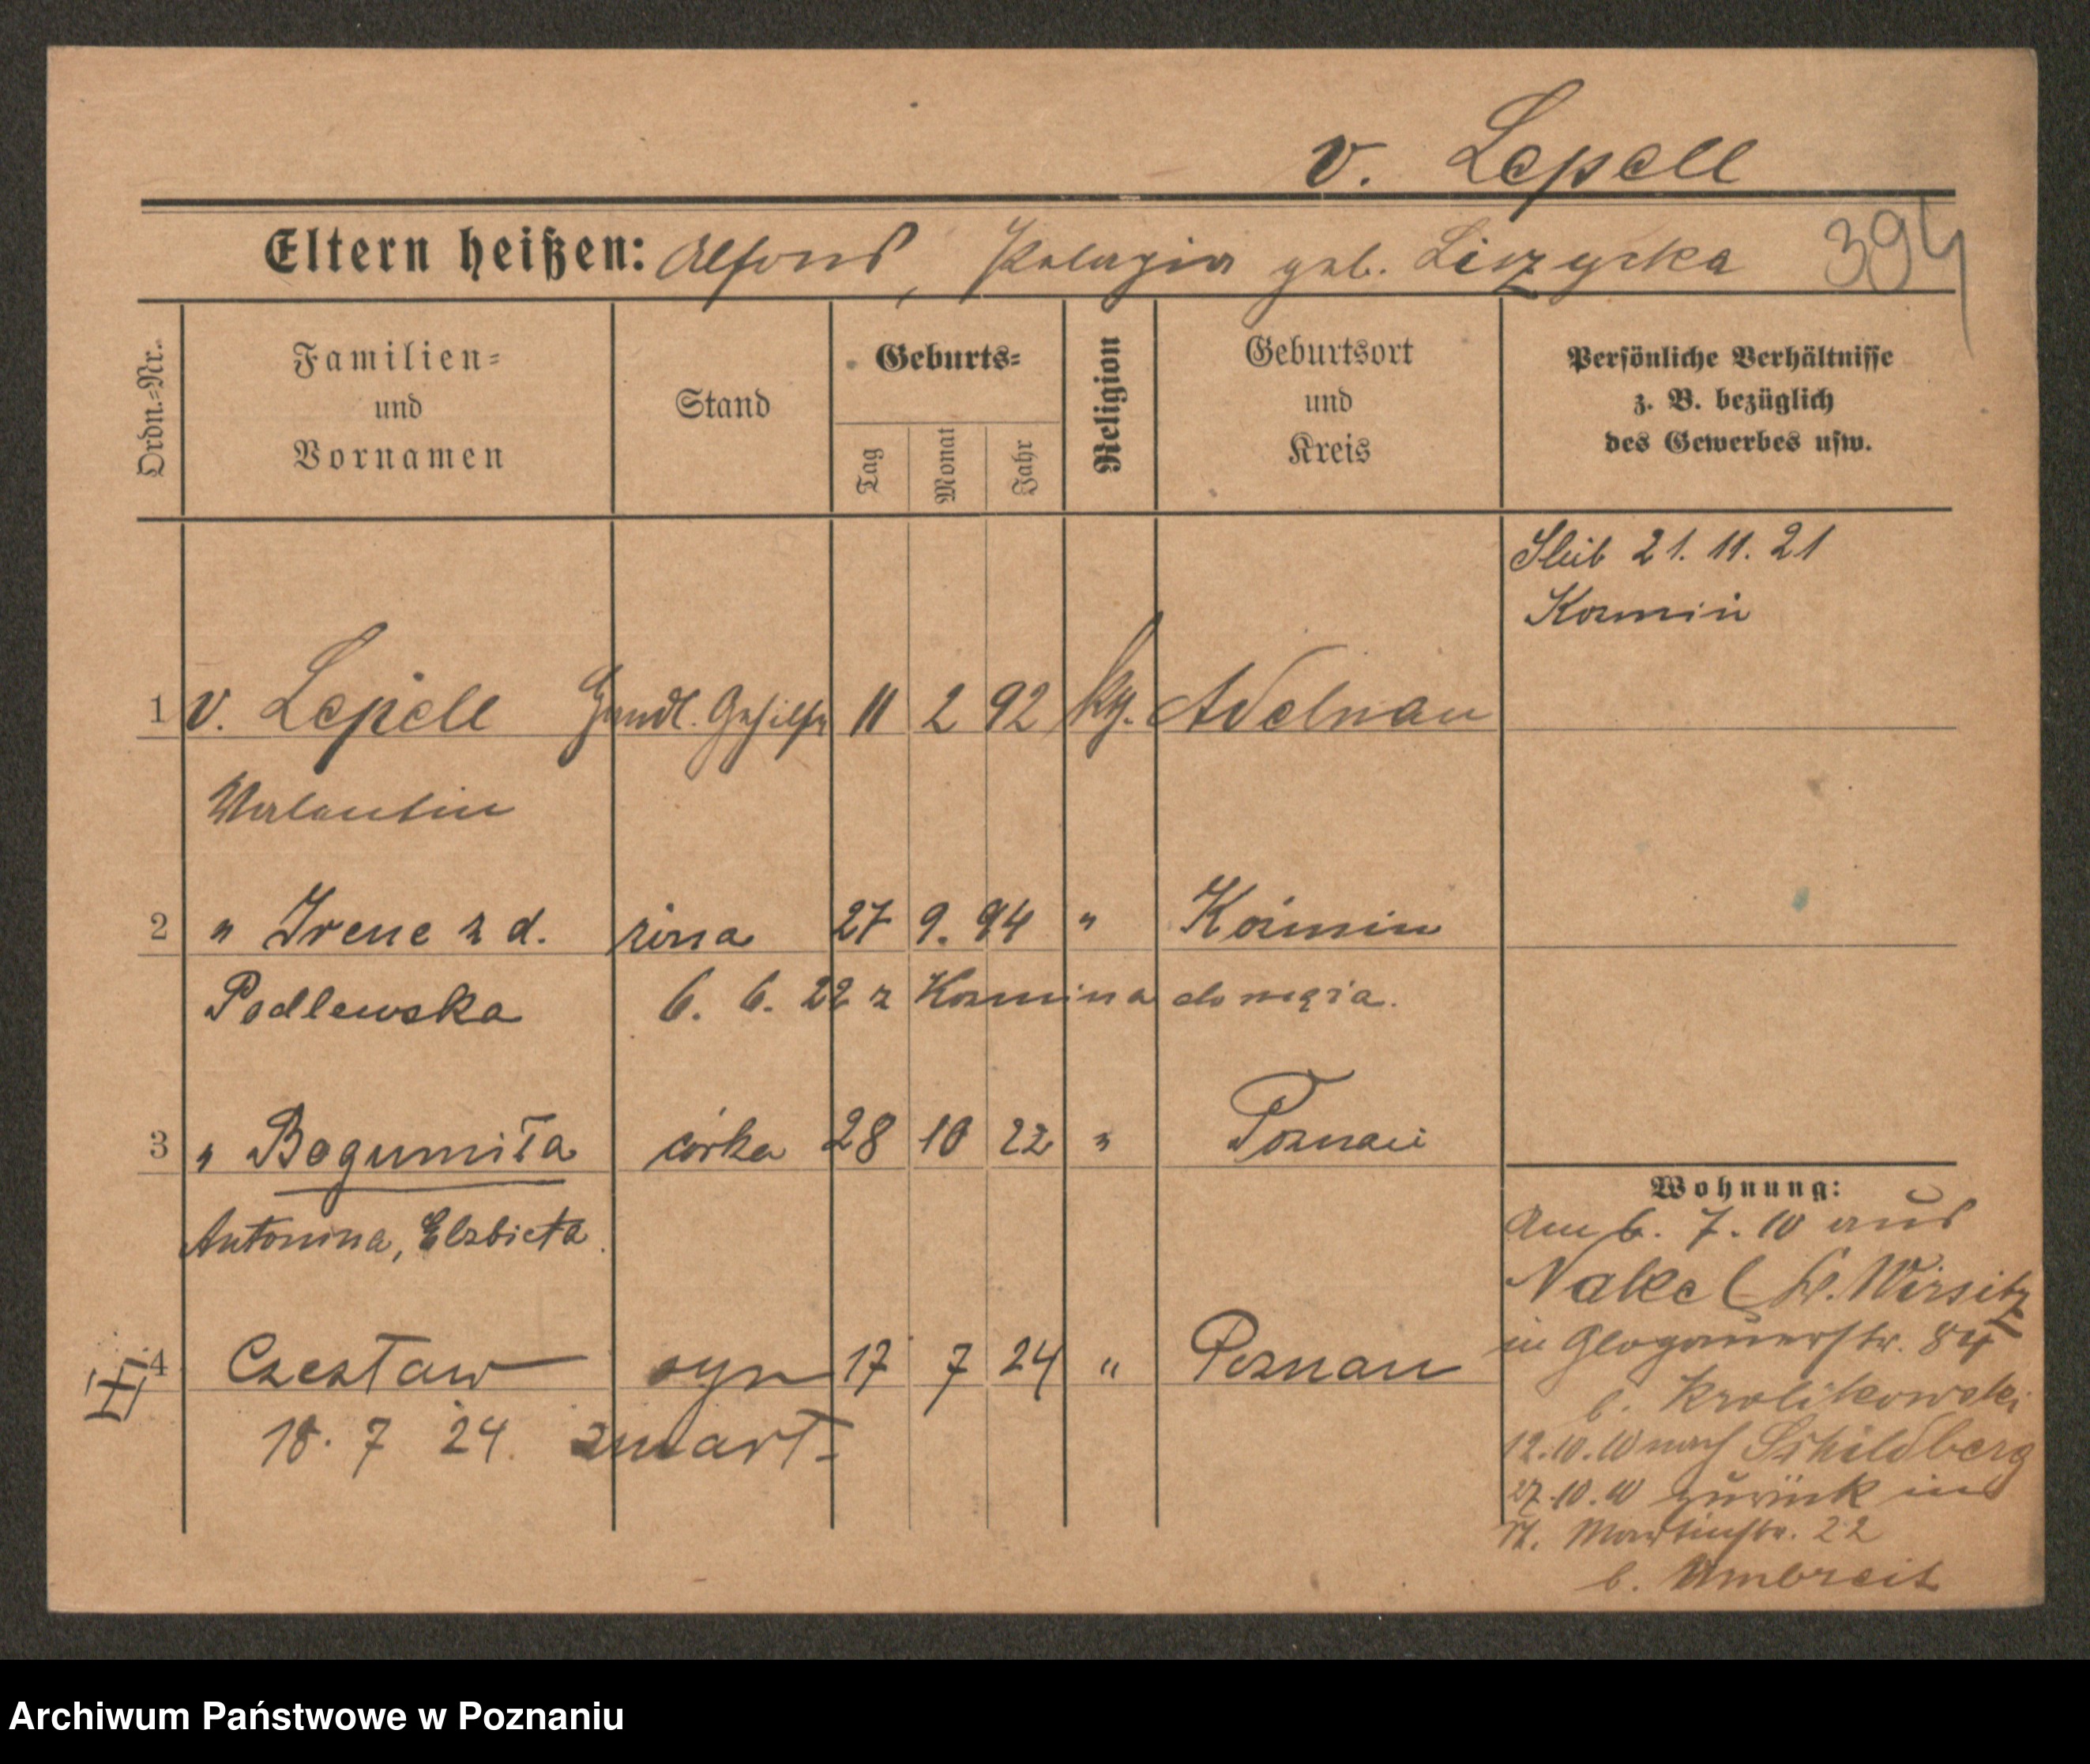 v. Lepell
Eltern heißen: Alfons, Pelagia geb. Liszycka 394
Ordn.=Nr.
Familien=
und
Vornamen
Stand
Geburts=
Tag
Monat
Jahr
Religion
Geburtsort
und
Kreis
Persönliche Verhältnisse
z. B. bezüglich
des Gewerbes usw.
Ślub 21. 11. 21
Kozmin
1 v. Lepell Handl. Gehilfe 11 2 92 Adelnau
Valentin
2 " Irene z d. żona 27 9. 94 " Kozmin
Podlewska 6. 6. 22 z Kozmina do męża.
3 " Bogumiła córka 28 10 22 " Poznań
Antonina, Elzbieta.
4 Czesław syn 17 7 24 " Poznań
18. 7 24. zmarł
Wohnung:
Am 6. 7. 10 aus
Nakel Kr. Wirsitz
in Glogauerstr. 84
b. Krolikowski
12.10.10 nach Schildberg
27.10.10 zurück
St. Martinstr. 22
b. Umbreit
Archiwum Państwowe w Poznaniu